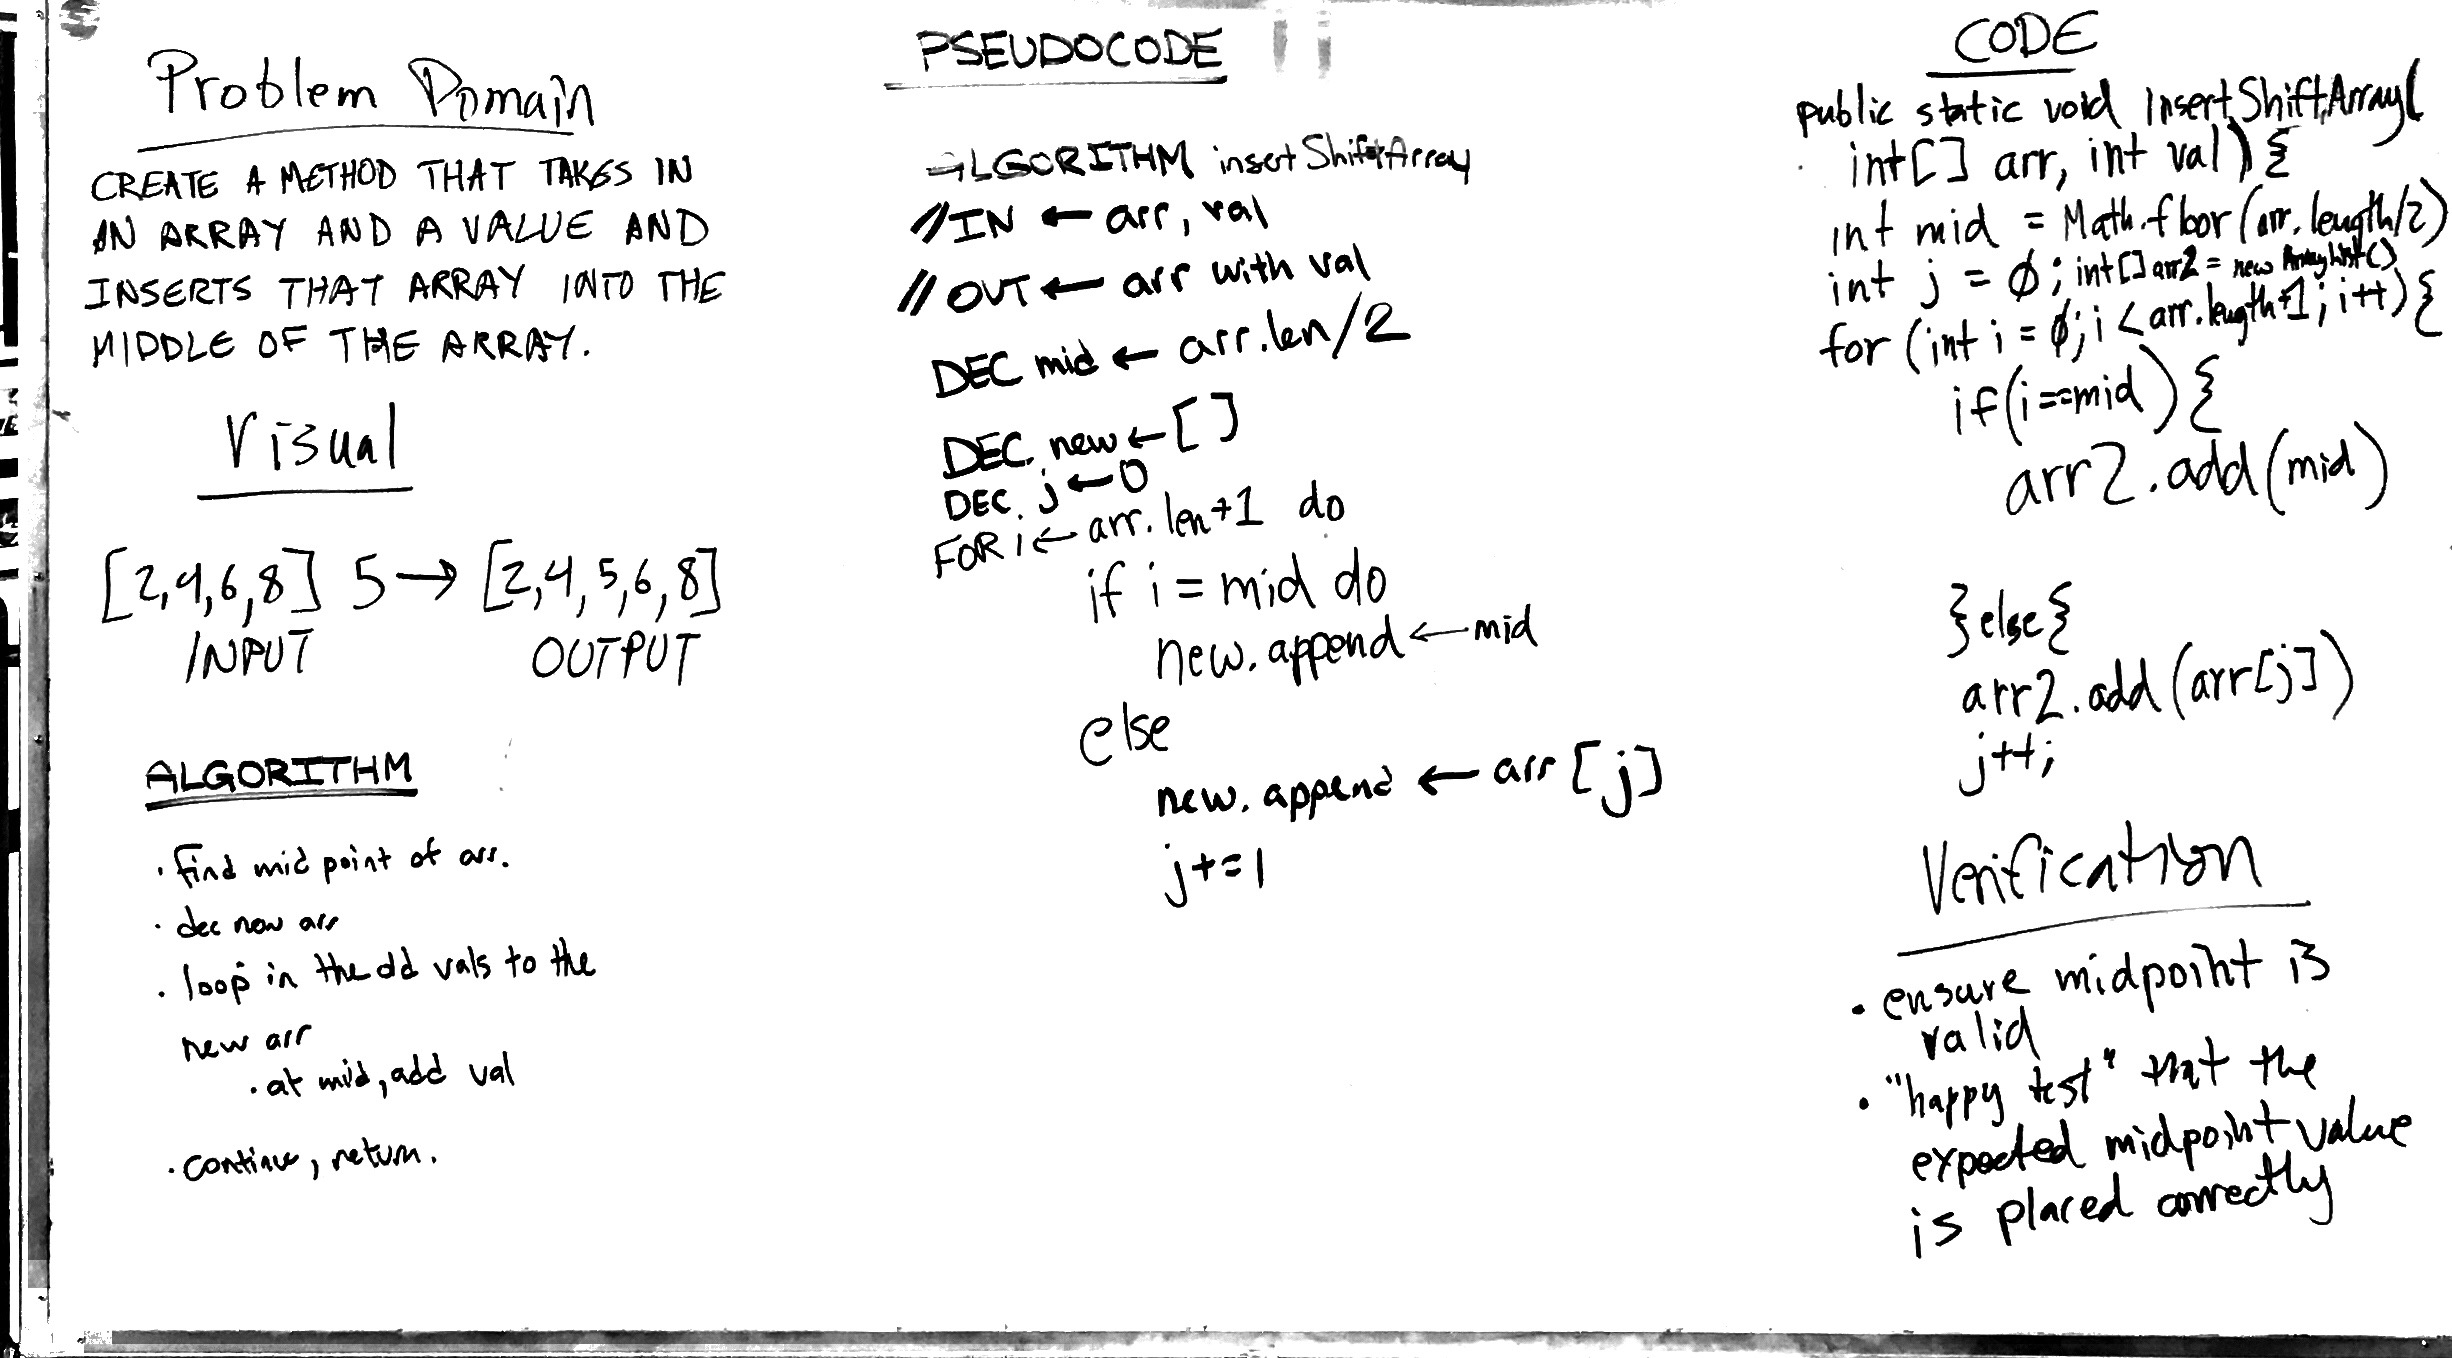 Problem Domain
CREATE A METHOD THAT TAKES IN
AN ARRAY AND A VALUE AND
INSERTS THAT ARRAY INTO THE
MIDDLE OF THE ARRAY.
Visual
[2,4,6,8] 5 → [2,4,5,6,8]
INPUT OUTPUT
ALGORITHM
· find mid point of arr.
· dec new arr
· loop in the old vals to the
new arr
· at mid, add val
· continue, return.
PSEUDOCODE
ALGORITHM insertShiftArray
//IN ← arr, val
//OUT ← arr with val
DEC mid ← arr.len/2
DEC. new ← []
DEC. j ← 0
FOR i ← arr.len+1 do
if i = mid do
new.append ← mid
else
new.append ← arr[j]
j+=1
CODE
public static void InsertShiftArray(
int[] arr, int val) {
int mid = Math.floor(arr.length/2)
int j = 0; int[] arr2 = new ArrayList()
for (int i = 0; i < arr.length+1; i++) {
if(i==mid) {
arr2.add(mid)
}else{
arr2.add(arr[j])
j++;
Verification
• ensure midpoint is
valid
• "happy test" that the
expected midpoint value
is placed correctly